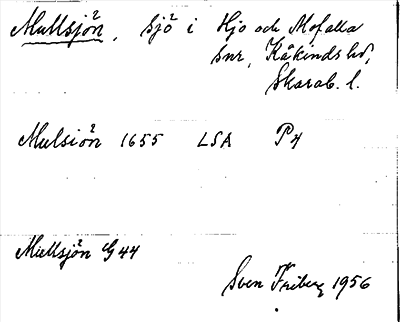 Mullsjön, sjö i Hjo och Mofalla
snr, Kåkinds hd,
Skarab. l.
Mulsiön 1655 LSA P4
Mullsjön G44
Sven Friberg 1956